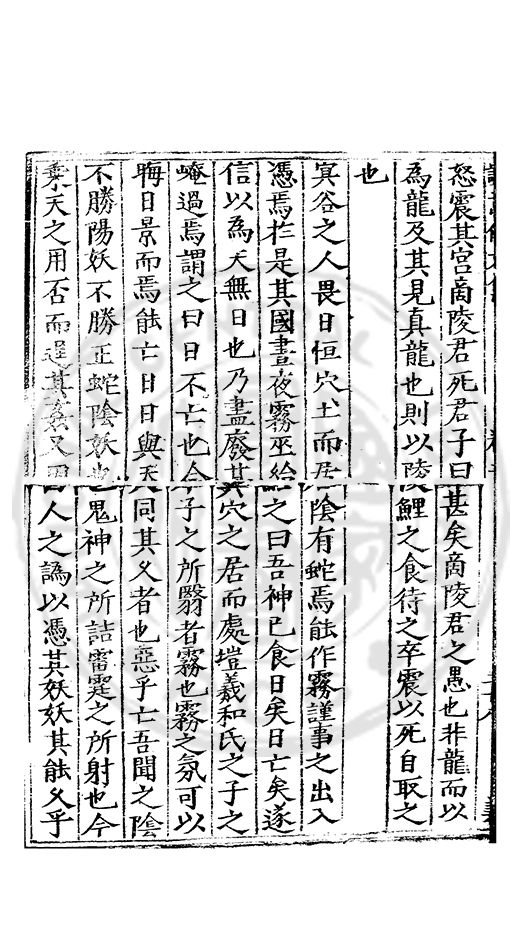 怒震其宮啇陵君死君子曰甚矣啇陵君之愚也非龍而以
為龍及其見真龍也則以陵鯉之食待之卒震以死自取之
也
冥谷之人畏日恒穴土而居陰有蛇焉能作霧謹事之出入
憑焉扵是其國晝夜霧巫紿之曰吾神已食日矣日亡矣遂
信以為天無日也乃盡廢其穴之居而處塏羲和氏之子之
崦過焉謂之曰日不亡也今子之所翳者霧也霧之氛可以
晦日景而焉能亡日日與天同其久者也惡乎亡吾聞之陰
不勝陽妖不勝正蛇陰妖也鬼神之所詰雷霆之所射也今
乘天之用否而逞其姦又因人之譌以憑其妖妖其能久乎